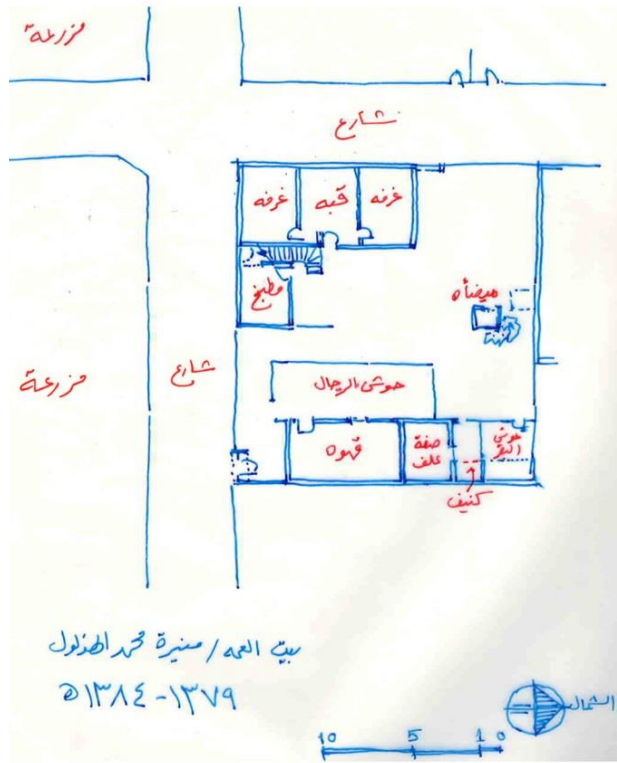 مزرعة
شارع
غرفه
قبه
غرفه
مطبخ
ميضأه
مزرعة
شارع
حوش الرجال
قهوه
صفة
علف
حوش
البقر
كنيف
بيت العمه / منيرة محمد الهذلول
١٣٧٩-١٣٨٤ه
الشمال
10 5 1 0